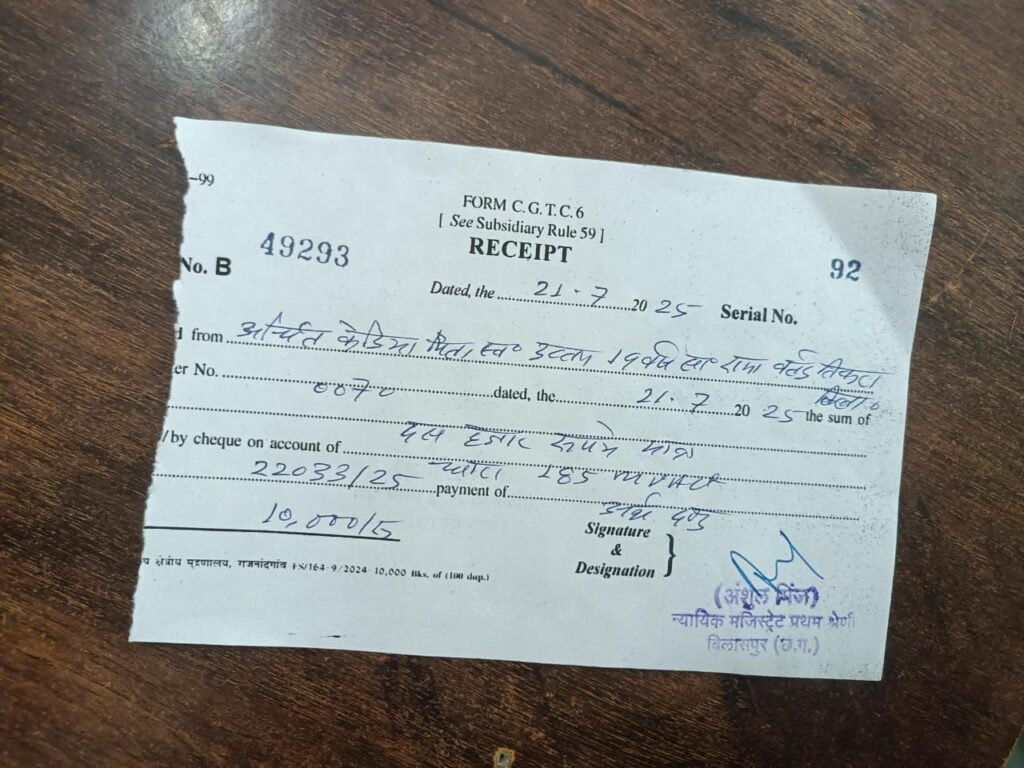 -99
FORM C.G.T.C.6
[ See Subsidiary Rule 59 ]
RECEIPT
No. B 49293 92
Dated, the 21.7 20 25 Serial No.
d from अर्चित केडिया पिता स्व० उत्तम 19 वर्ष सा० रामा वर्ल्ड
er No. 0070 dated, the 21.7 20 25 the sum of
/by cheque on account of दस हजार रूपये मात्र
22033/25 payment of धारा 185 mvact
10,000/- अर्थ दण्ड
Signature
&
Designation
य क्षेत्रीय मुद्रणालय, राजनांदगांव FS/164-9/2024-10,000 Bks. of (100 dup.)
(अंशुल मिंज)
न्यायिक मजिस्ट्रेट प्रथम श्रेणी
बिलासपुर (छ.ग.)